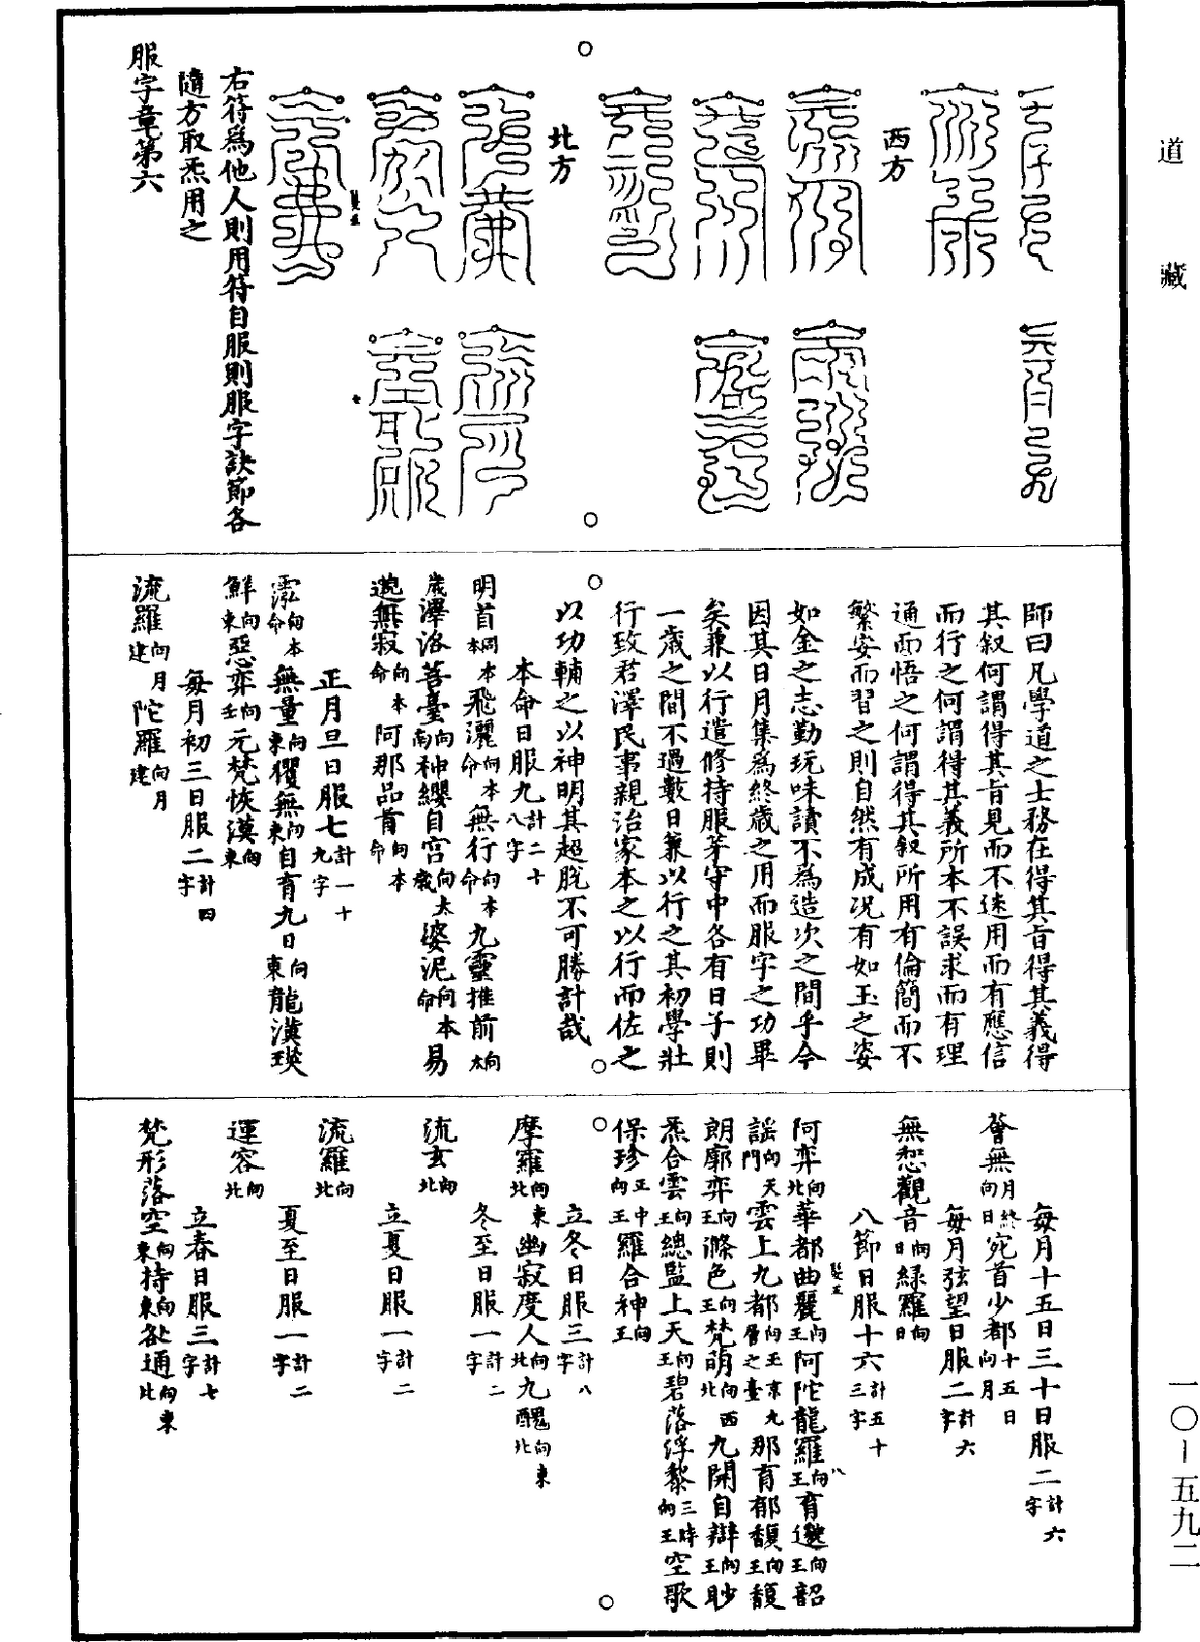 道藏
西方
北方
右符爲他人則用符自服則服字訣節各
隨方取炁用之
服字章第六
師曰凡學道之士務在得其旨得其義得
其叙何謂得其旨見而不迷用而有應信
而行之何謂得其義所本不誤求而有理
通而悟之何謂得其叙所用有倫簡而不
繁安而習之則自然有成况有如玉之姿
如金之志勤玩味讀不為造次之間乎今
因其日月集為終歲之用而服字之功畢
矣兼以行遣修持服芽守中各有日子則
一歲之間不過數日兼以行之其初學壯
行致君澤民事親治家本之以行而佐之
以功輔之以神明其超脫不可勝計哉
本命日服九計二十八字
明首向本飛灑向本命無行向本命九靈推前向太
歲澤洛菩臺向南神纓自宮向太歲婆泥向本命易
邈無寂向本命阿那品首向本命
正月旦日服七計一十九字
澐向本命無量向東櫂無向東自育九日向東龍漢瑛
鮮向東惡弈向壬元梵恢漠向東
每月初三日服二計四字
流羅向月建陀羅向月建
每月十五日三十日服二計六字
薈無月終向日宛首少都十五日向月
每月弦望日服二計六字
無惒觀音向日綠羅向日
八節日服十六計五十三字
阿弈向北華都曲麗向王阿陀龍羅向王育邈向王韶
謠向天門雲上九都向玉京九層之臺那育郁馥向王馥
朗廓弈向王滌色向王梵萌向西北九開自辯向王眇
炁合雲向王總監上天向王碧落浮黎三時向王空歌
保珍正中向王羅合神向王
立冬日服三計八字
摩羅向東北幽寂度人向北九醜向東北
冬至日服一計二字
流玄向北
立夏日服一計二字
流羅向北
夏至日服一計二字
運容向北
立春日服三計七字
梵形落空向東持向東各通向東北
一〇—五九二